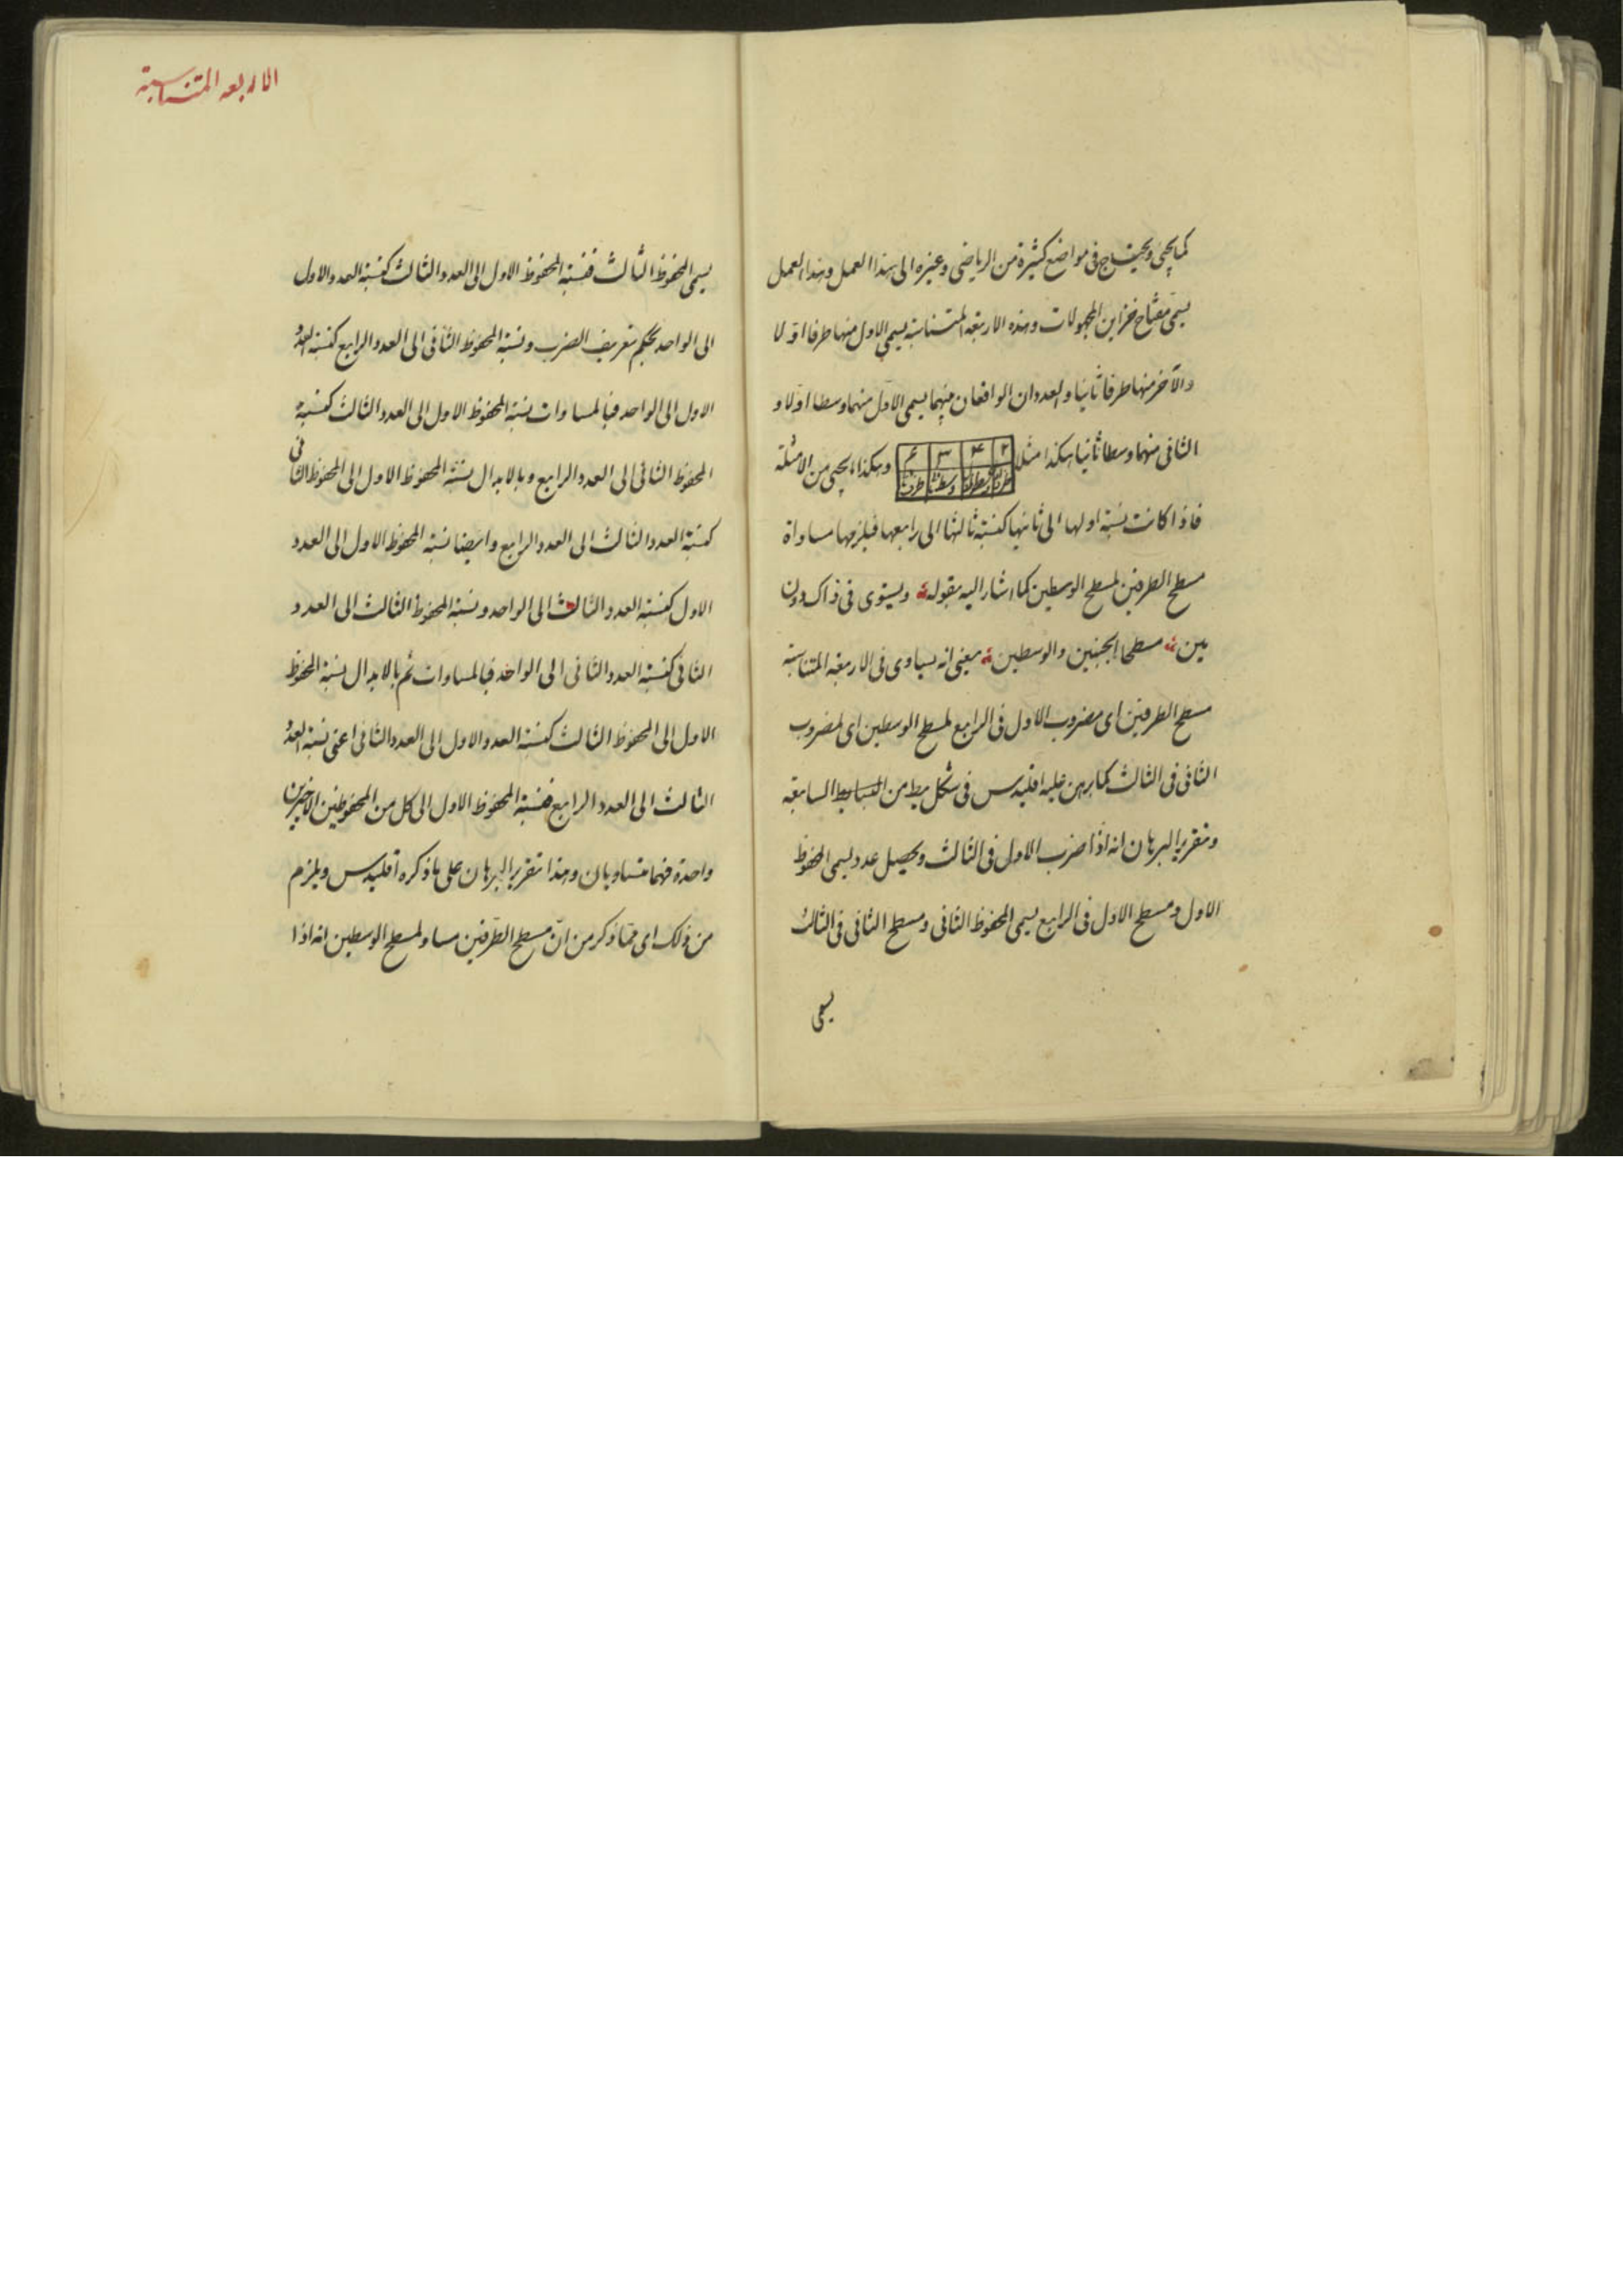 كما يجئ ويحتاج فى مواضع كثيرة من الرياضى وغيره الى هذا العمل وهذا العمل
يسمى مفتاح خزاين المجهولات وهذه الاربعة المتناسبة يسمى الاول منها طرفا اولا
والآخر منها طرفا ثانيا والعددان الواقعان بينهما يسمى الاول منهما وسطا اولا و
الثانى منهما وسطا ثانيا هكذا مثلا
۲ ۴ ۳ ۶
وهكذا ما يجئ من الامثلة
فاذا كانت نسبة اولها الى ثانيها كنسبة ثالثها الى رابعها فيلزمها مساواة
مسطح الطرفين لمسطح الوسطين كما اشار اليه بقوله ويستوى فى ذاك دون
مين مسطحا الجنبين والوسطين معنى انه يساوى فى الاربعة المتناسبة
مسطح الطرفين اى مضروب الاول فى الرابع لمسطح الوسطين اى لمضروب
الثانى فى الثالث كما برهن عليه اقليدس فى شكل يط من السابعة
وتقرير البرهان انه اذا ضرب الاول فى الثالث ويحصل عدد يسمى المحفوظ
الاول ومسطح الاول فى الرابع يسمى المحفوظ الثانى ومسطح الثانى فى الثالث
يسمى
الاربعه المتناسبة
يسمى المحفوظ الثالث فنسبة المحفوظ الاول الى العدد الثالث كنسبة العدد الاول
الى الواحد بحكم تعريف الضرب ونسبة المحفوظ الثانى الى العدد الرابع كنسبة العدد
الاول الى الواحد فبالمساوات نسبة المحفوظ الاول الى العدد الثالث كنسبة
المحفوظ الثانى الى العدد الرابع وبالابدال نسبة المحفوظ الاول الى المحفوظ الثانى
كنسبة العدد الثالث الى العدد الرابع وايضا نسبة المحفوظ الاول الى العدد
الاول كنسبة العدد الثالث الى الواحد ونسبة المحفوظ الثالث الى العدد
الثانى كنسبة العدد الثانى الى الواحد فبالمساوات ثم بالابدال نسبة المحفوظ
الاول الى المحفوظ الثالث كنسبة العدد الاول الى العدد الثانى اعنى نسبة العدد
الثالث الى العدد الرابع فنسبة المحفوظ الاول الى كل من المحفوظين الاخيرين
واحدة فهما متساويان وهذا تقرير البرهان على ما ذكره اقليدس ويلزم
من ذلك اى مما ذكر من ان مسطح الطرفين مساو لمسطح الوسطين انه اذا